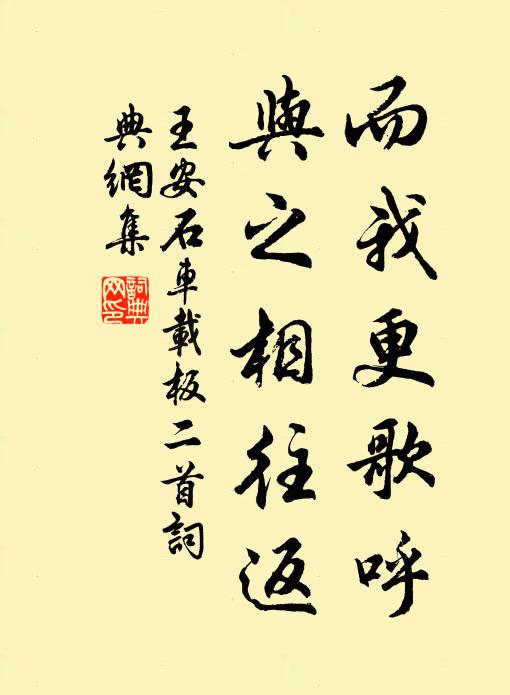 而我更歌呼
與之相往返
王安石車載板二首詞
典網集
詞典網印